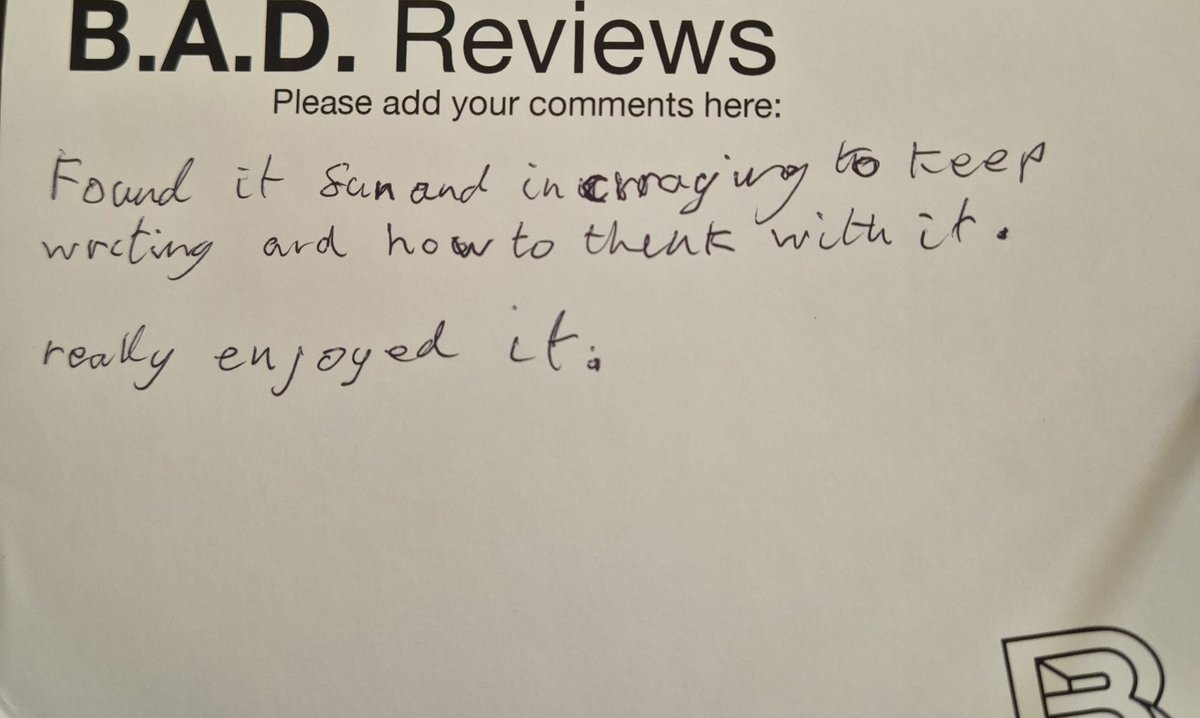 B.A.D. Reviews
Please add your comments here:
Found it fun and incrraging to keep
writing and how to think with it.
really enjoyed it.